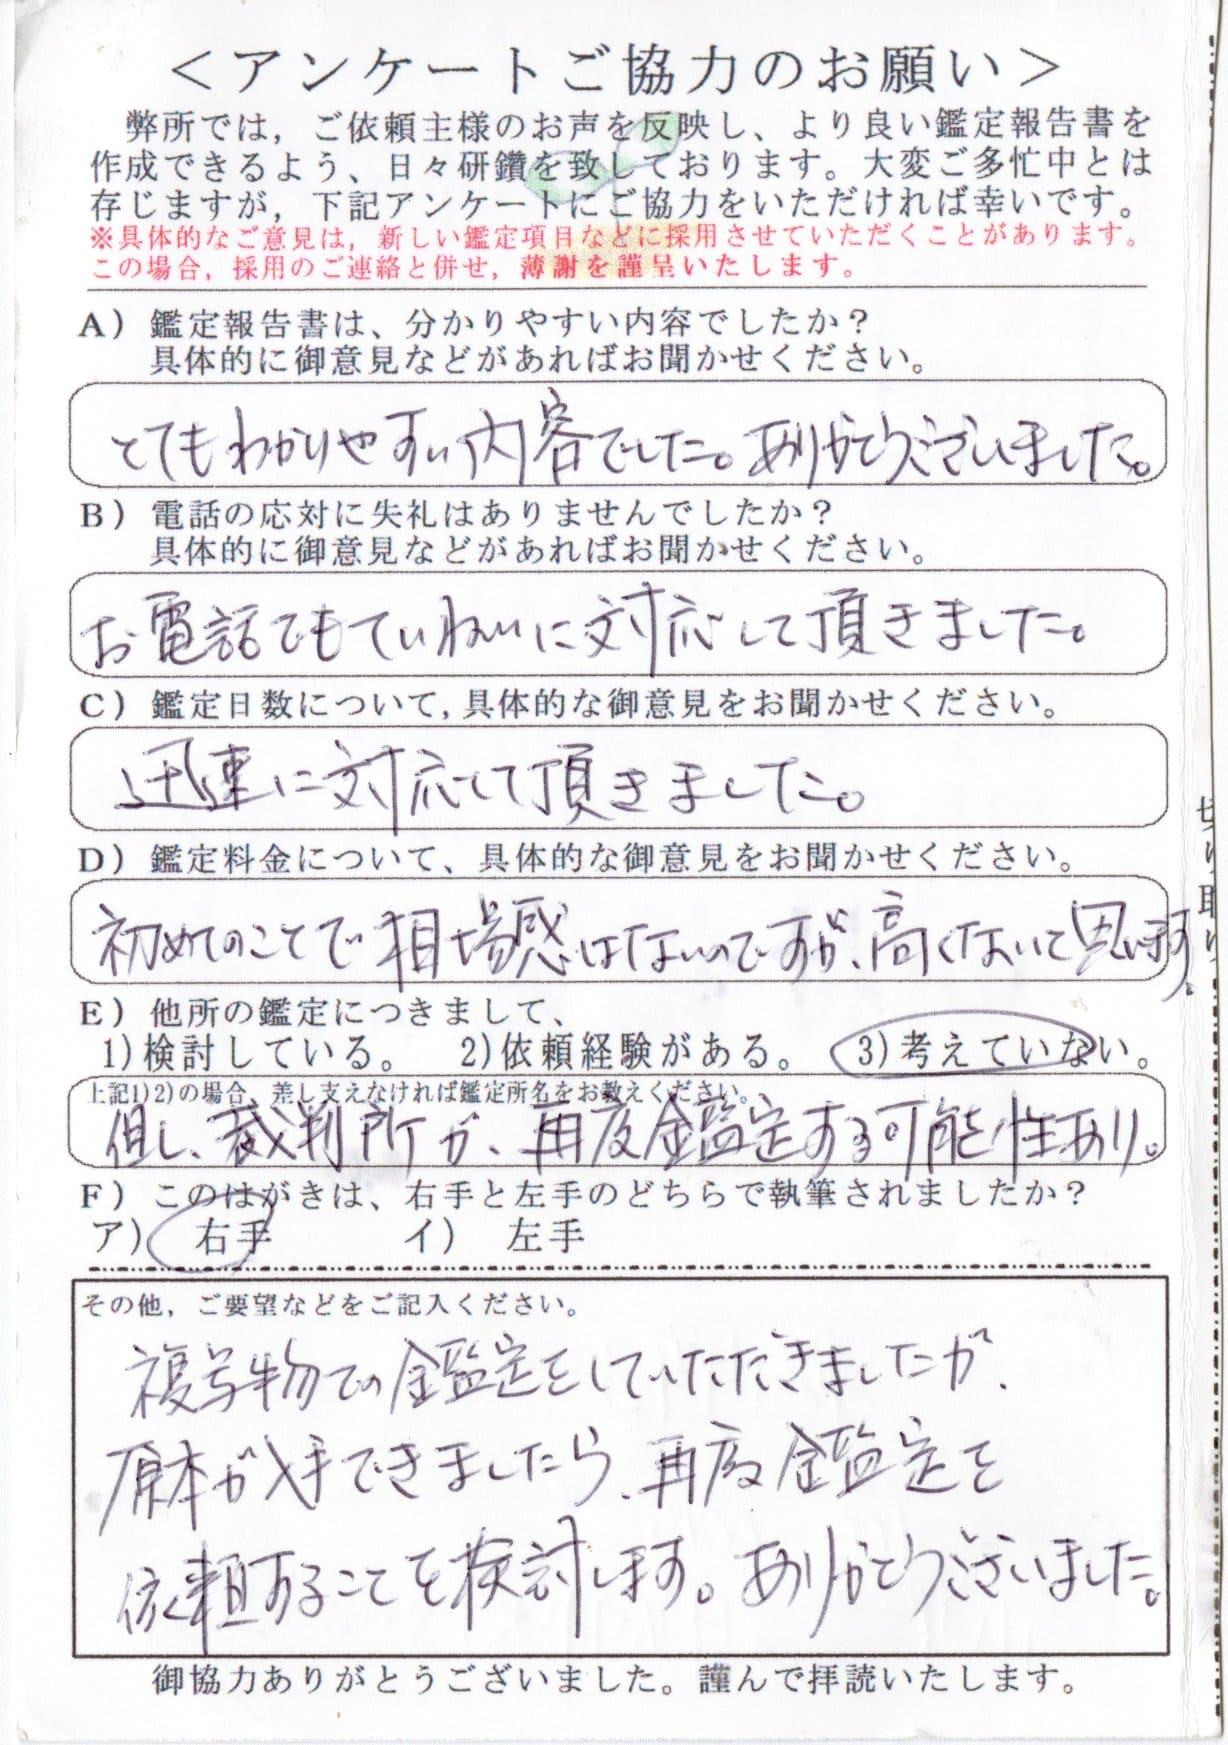 ＜アンケートご協力のお願い＞
弊所では，ご依頼主様のお声を反映し、より良い鑑定報告書を
作成できるよう、日々研鑽を致しております。大変ご多忙中とは
存じますが，下記アンケートにご協力をいただければ幸いです。
※具体的なご意見は，新しい鑑定項目などに採用させていただくことがあります。
この場合，採用のご連絡と併せ，薄謝を謹呈いたします。
A）鑑定報告書は、分かりやすい内容でしたか？
具体的に御意見などがあればお聞かせください。
とてもわかりやすい内容でした。ありがとうございました。
B）電話の応対に失礼はありませんでしたか？
具体的に御意見などがあればお聞かせください。
お電話でもていねいに対応して頂きました。
C）鑑定日数について，具体的な御意見をお聞かせください。
迅速に対応して頂きました。
D）鑑定料金について、具体的な御意見をお聞かせください。
初めてのことで相場感はないのですが、高くないと思います。
E）他所の鑑定につきまして、
1)検討している。 2)依頼経験がある。 3)考えていない。
上記1)2)の場合、差し支えなければ鑑定所名をお教えください。
但し、裁判所が、再度鑑定する可能性あり。
F）このはがきは、右手と左手のどちらで執筆されましたか？
ア） 右手 イ） 左手
その他，ご要望などをご記入ください。
複写物での鑑定をしていただきましたが、
原本が入手できましたら、再度鑑定を
依頼することを検討します。ありがとうございました。
御協力ありがとうございました。謹んで拝読いたします。
切り取り